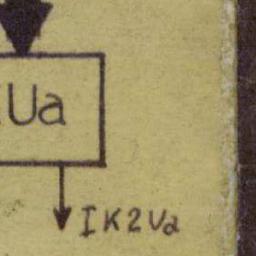 Ua
IK2Va